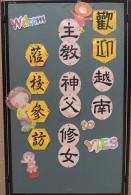 Welcome
歡迎越南
主教神父修女
蒞校參訪
to
YIES